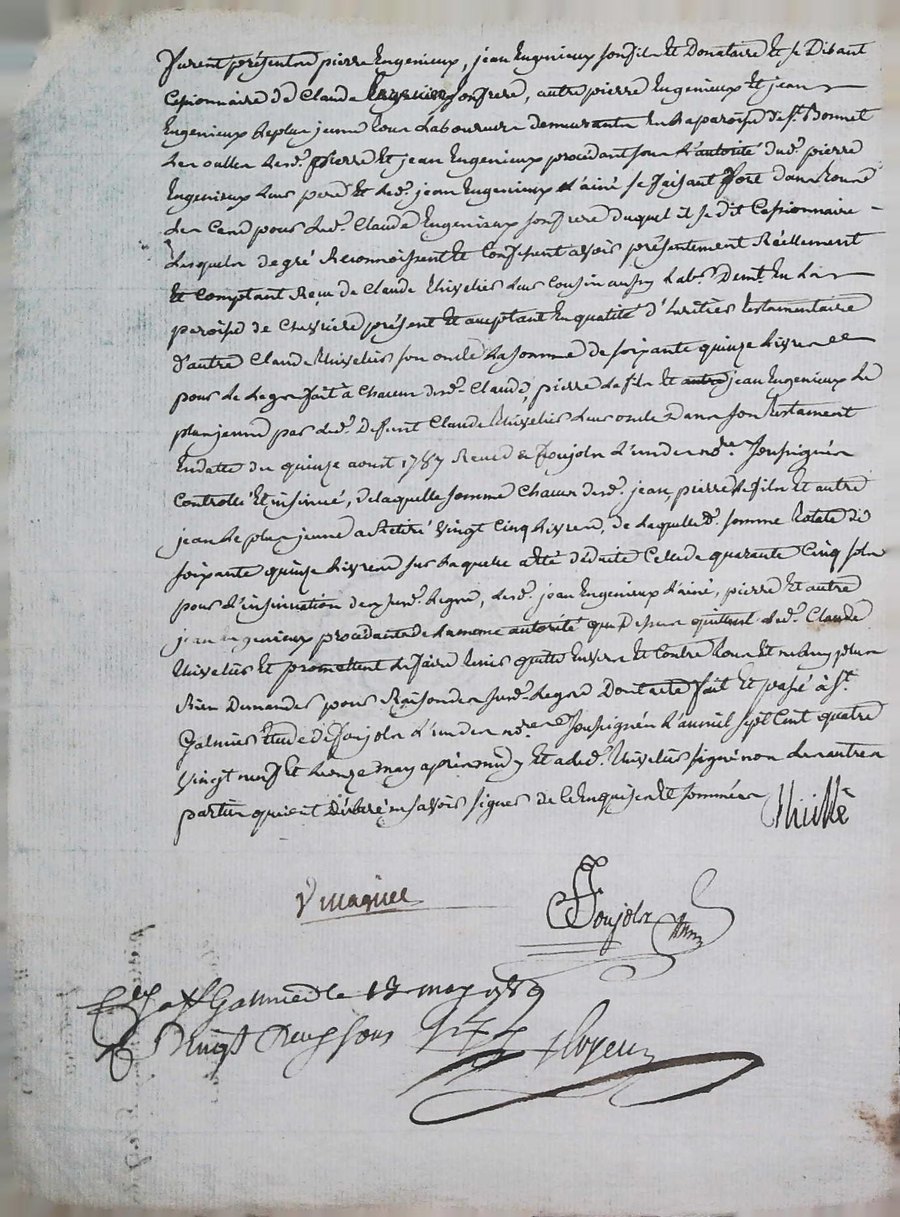 furent présents pierre Engenieux, jean Engenieux son fils Et Donataire Et se Disant
Cessionnaire de Claude Engenieux son frere, autre pierre Engenieux Et jean
Engenieux le plus jeune tous Laboureurs demeurants En la paroisse de st. Bonnet
les oulles lesd. pierre Et jean Engenieux procedant sous L'autorité dud. pierre
Engenieux Leur pere Et led. jean Engenieux L'ainé se faisant fort dans tous
les Cas pour led. Claude Engenieux son frere duquel il se dit Cessionnaire
Lesquels de gré Reconnoissent Et Confessent avoir présentement Réellement
Et Comptant Reçu de Claude Thivelier Leur Cousin aussy Labr. Demt. En La
paroisse de Chevrieres présent Et acceptant En qualité d'heritier testamentaire
d'autre Claude Thivelier son oncle La somme de soixante quinze Livres
pour le Legs fait à Chacun desd. Claude, pierre le fils Et autre jean Engenieux Le
plus jeune par led. Defunt Claude Thivelier Leur oncle Dans son testament
En datte du quinze aout 1787 Recu de foujols L'un des nores. soussignés
Controllé Et insinué, de laquelle somme Chacun desd. jean, pierre le fils Et autre
jean le plus jeune a Retiré vingt Cinq Livres, de laquelle d. somme totale de
soixante quinze Livres sur laquelle a été déduite Celle de quarante Cinq sols
pour L'insinuation desd. Legs, lesd. jean Engenieux L'ainé, pierre Et autre
jean Engenieux procedants de la meme autorité que Dessus quittent led. Claude
Thivelier Et promettent le faire tenir quitte Envers Et Contre tous Et ne luy plus
Rien Demander pour Raison des susd. Legs Dont acte fait Et passé à st.
Galmier Etude de foujols L'un des nores. soussignés L'an mil sept Cent quatre
vingt neuf Et le onze may après midy Et a led. Thivelier signé non les autres
parties qui ont Déclaré ne savoir signer de ce Enquises Et sommées Thivellé
Foujols
à st Galmier le 13 may 1789
vingt deux sous